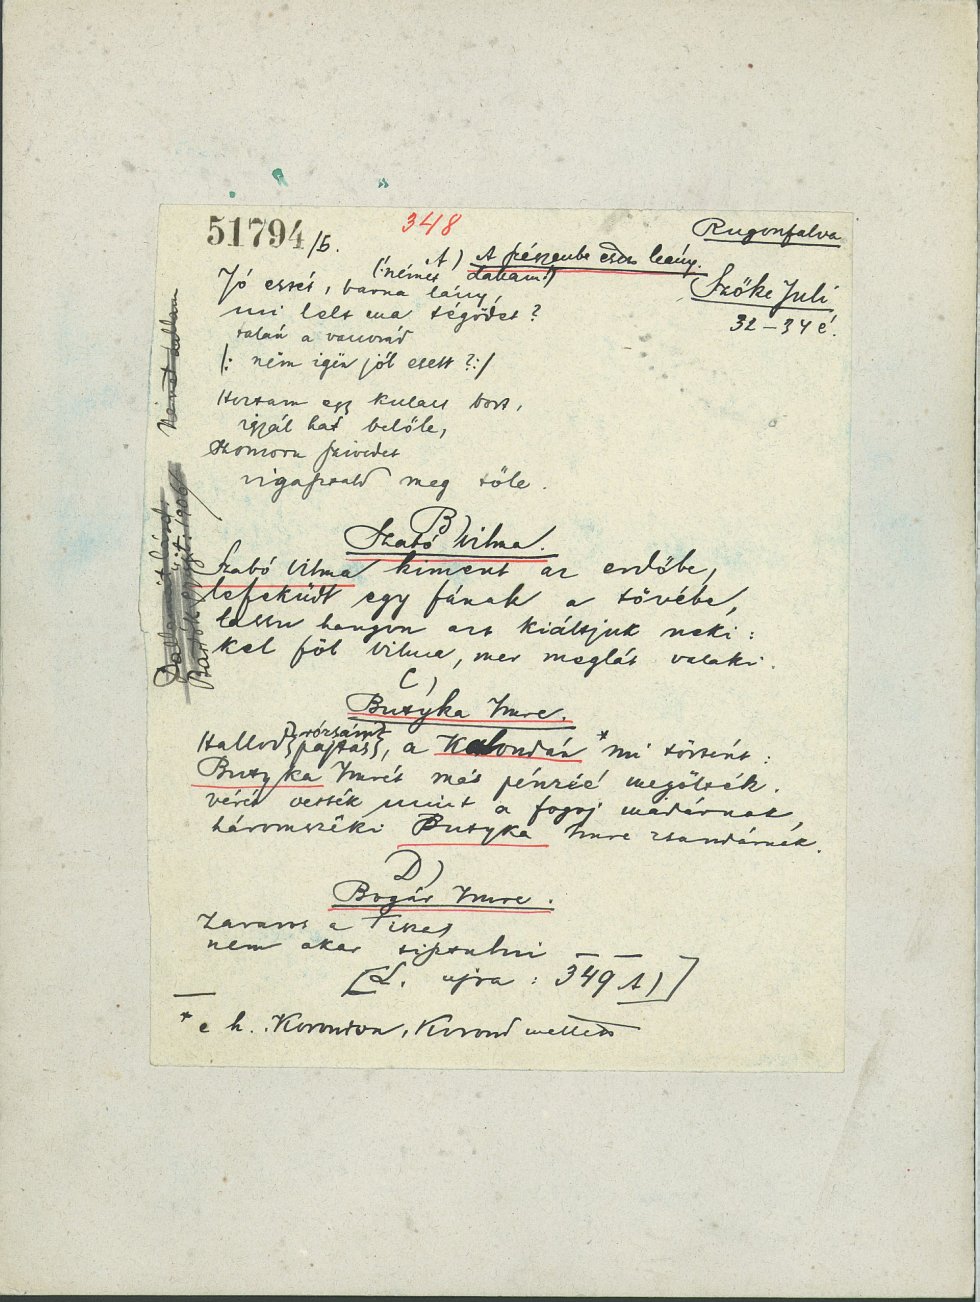 51794/b.
348
Rugonfalva
A) A pészenbe esett leány.
(: német dallam :)
Szőke Juli
32–34 é.
Jó estét, barna lány,
mi lelt ma tégödet?
talán a vacsorád
/: nëm igën jól esett?:/
Hoztam egy kulacs bort,
igyál hát belőle,
Szomorú szivedet
vigasztald meg tőle.
B)
Szabó Vilma.
Szabó Vilma kiment az erdőbe,
lefeküdt egy fának a tövébe,
lassu hangon azt kiáltjuk neki:
kel föl Vilma, mer meglát valaki.
C)
Butyka Imre.
Hallod {rózsám
pajtás}, a Kalondán * mi történt:
Butyka Imrét más pénzié megölték.
vérit vették mint a fogoj madárnak,
háromszéki Butyka Imre zsandárnak.
D)
Bogár Imre.
Zavaros a Tisza,
nem akar tisztulni
[L. ujra: 349 A)]
* e h. Korondon, Korond mellett
Német dallam
Bartók gyűjt. 1906/